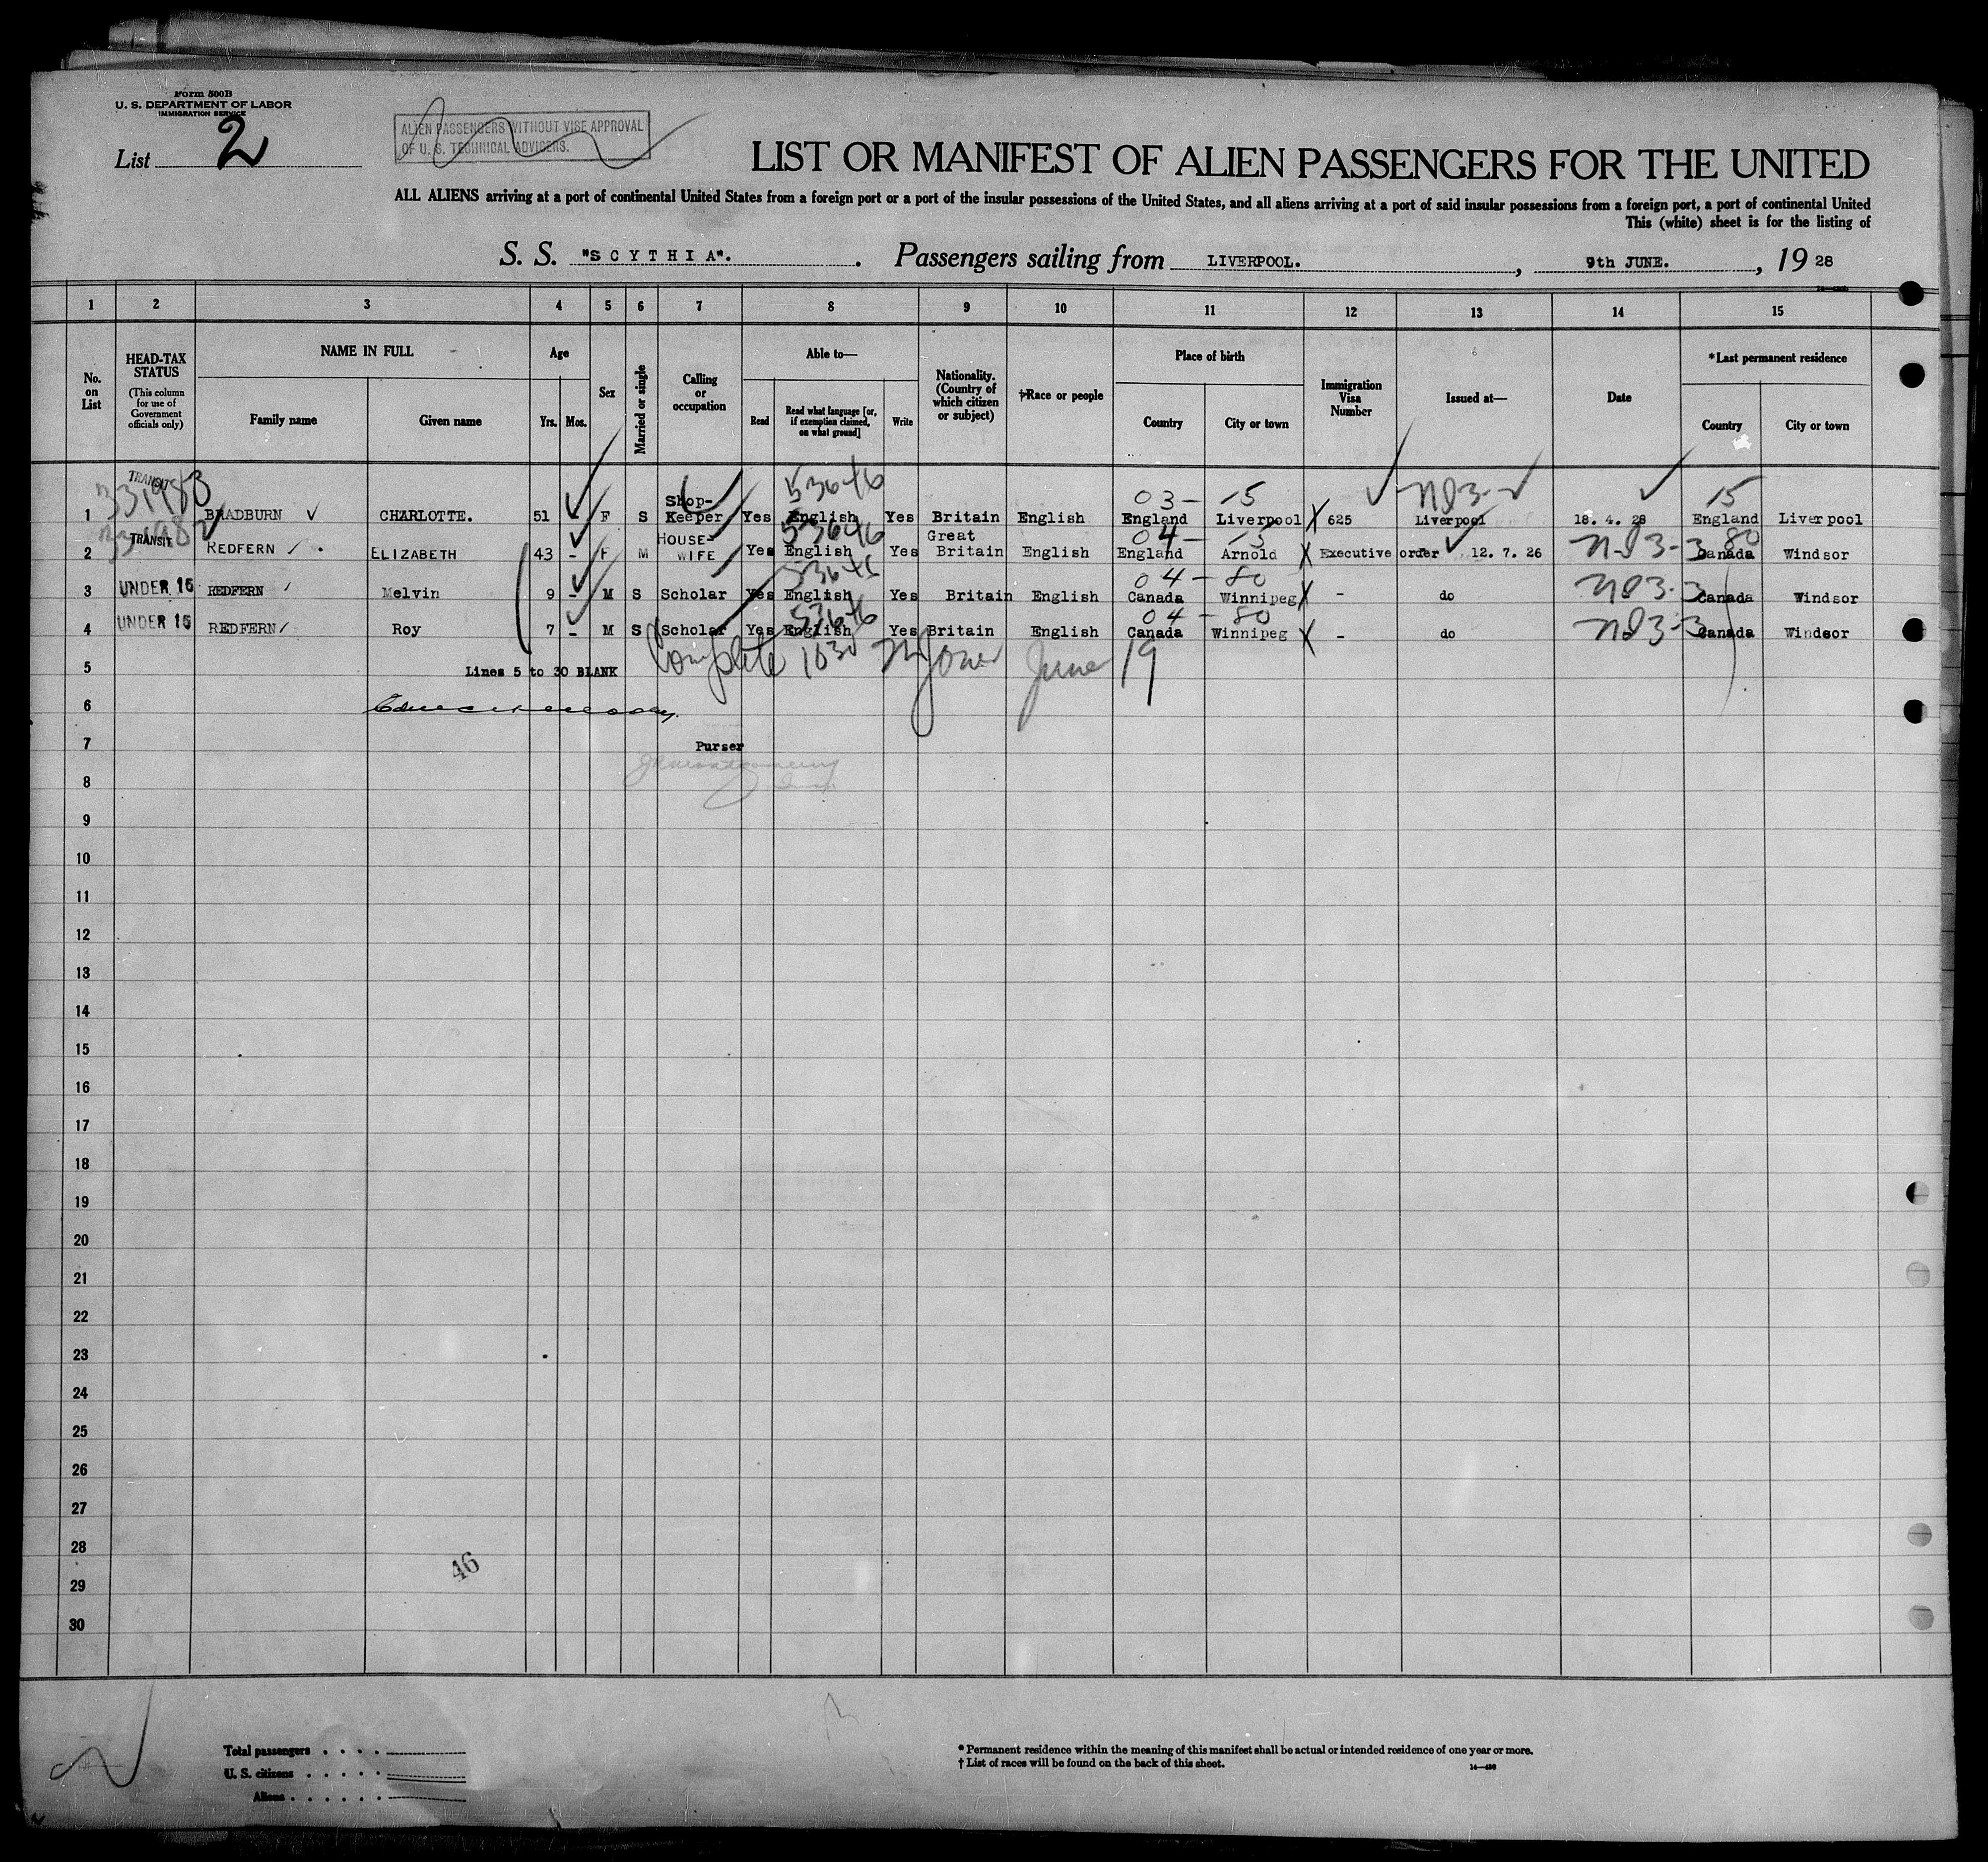 Form 500B
U. S. DEPARTMENT OF LABOR
IMMIGRATION SERVICE
List 2
ALIEN PASSENGERS WITHOUT VISE APPROVAL
OF U. S. TECHNICAL ADVISERS.
LIST OR MANIFEST OF ALIEN PASSENGERS FOR THE UNITED
ALL ALIENS arriving at a port of continental United States from a foreign port or a port of the insular possessions of the United States, and all aliens arriving at a port of said insular possessions from a foreign port, a port of continental United
This (white) sheet is for the listing of
S. S. "SCYTHIA". Passengers sailing from LIVERPOOL. , 9th JUNE. , 19 28
1 2 3 4 5 6 7 8 9 10 11 12 13 14 15
No. on List
HEAD-TAX STATUS
(This column for use of Government officials only)
NAME IN FULL
Family name
Given name
Age
Yrs. Mos.
Sex
Married or single
Calling or occupation
Able to—
Read
Read what language [or, if exemption claimed, on what ground]
Write
Nationality. (Country of which citizen or subject)
†Race or people
Place of birth
Country
City or town
Immigration Visa Number
Issued at—
Date
*Last permanent residence
Country
City or town
TRANSIT 53646 03 - 15 ND3- 15
1 BRADBURN CHARLOTTE. 51 - F S Shop-Keeper Yes English Yes Britain English England Liverpool 625 Liverpool 18. 4. 28 England Liverpool
TRANSIT 53646 04 - 15 80
2 REDFERN ELIZABETH 43 - F M HOUSE-WIFE Yes English Yes Great Britain English England Arnold Executive order 12. 7. 26 ND3-3 Canada Windsor
53646 04 - 80
3 UNDER 16 REDFERN Melvin 9 - M S Scholar Yes English Yes Britain English Canada Winnipeg - do ND3-3 Canada Windsor
53646 04 - 80
4 UNDER 16 REDFERN Roy 7 - M S Scholar Yes English Yes Britain English Canada Winnipeg - do ND3-3 Canada Windsor
5 Lines 5 to 30 BLANK Complete 1030 June 19
6
7 Purser
8
9
10
11
12
13
14
15
16
17
18
19
20
21
22
23
24
25
26
27
28
29
30
46
Total passengers . . . .
U. S. citizens . . . . .
Aliens . . . . . .
* Permanent residence within the meaning of this manifest shall be actual or intended residence of one year or more.
† List of races will be found on the back of this sheet.